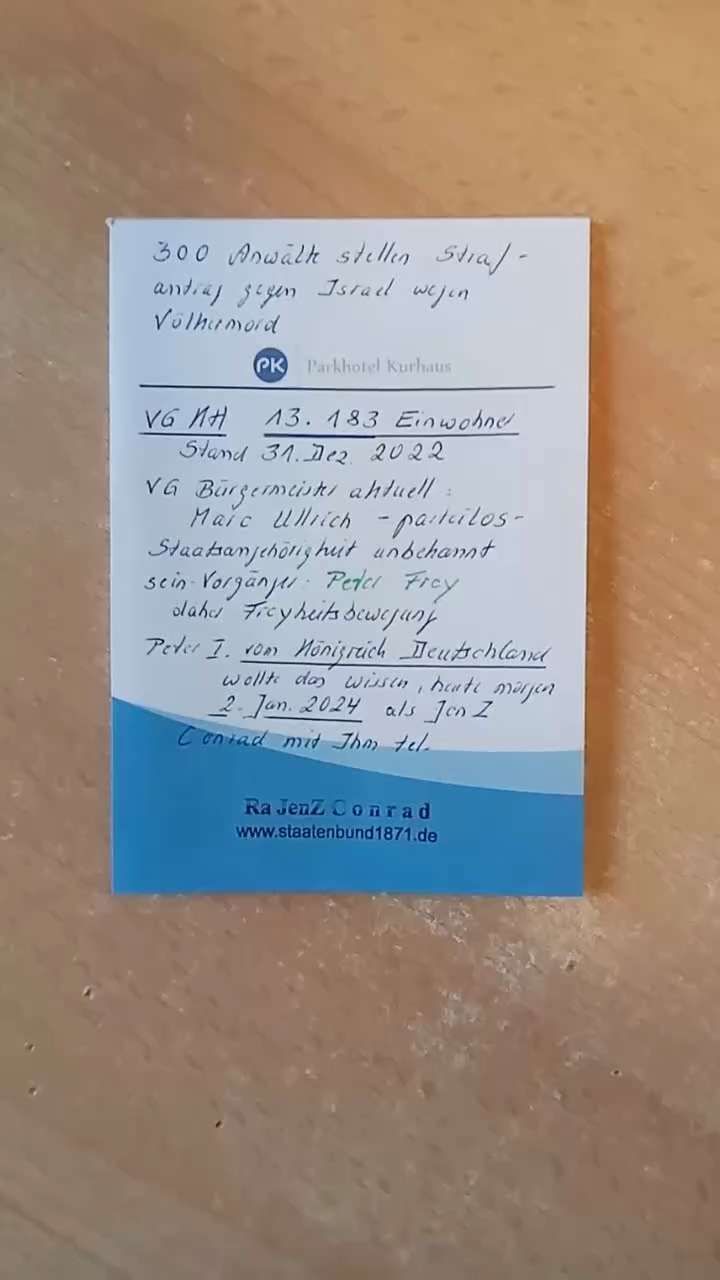 300 Anwälte stellen Straf-
antrag gegen Israel wegen
Völkermord
PK Parkhotel Kurhaus
VG NH 13.183 Einwohner
Stand 31. Dez. 2022
VG Bürgermeister aktuell:
Marc Ullrich - parteilos -
Staatsangehörigkeit unbekannt
sein Vorgänger: Peter Frey
daher Freyheitsbewegung
Peter I. vom Königreich Deutschland
wollte das wissen, heute morgen
2. Jan. 2024 als JenZ
Conrad mit Ihm tel.
Ra JenZ Conrad
www.staatenbund1871.de